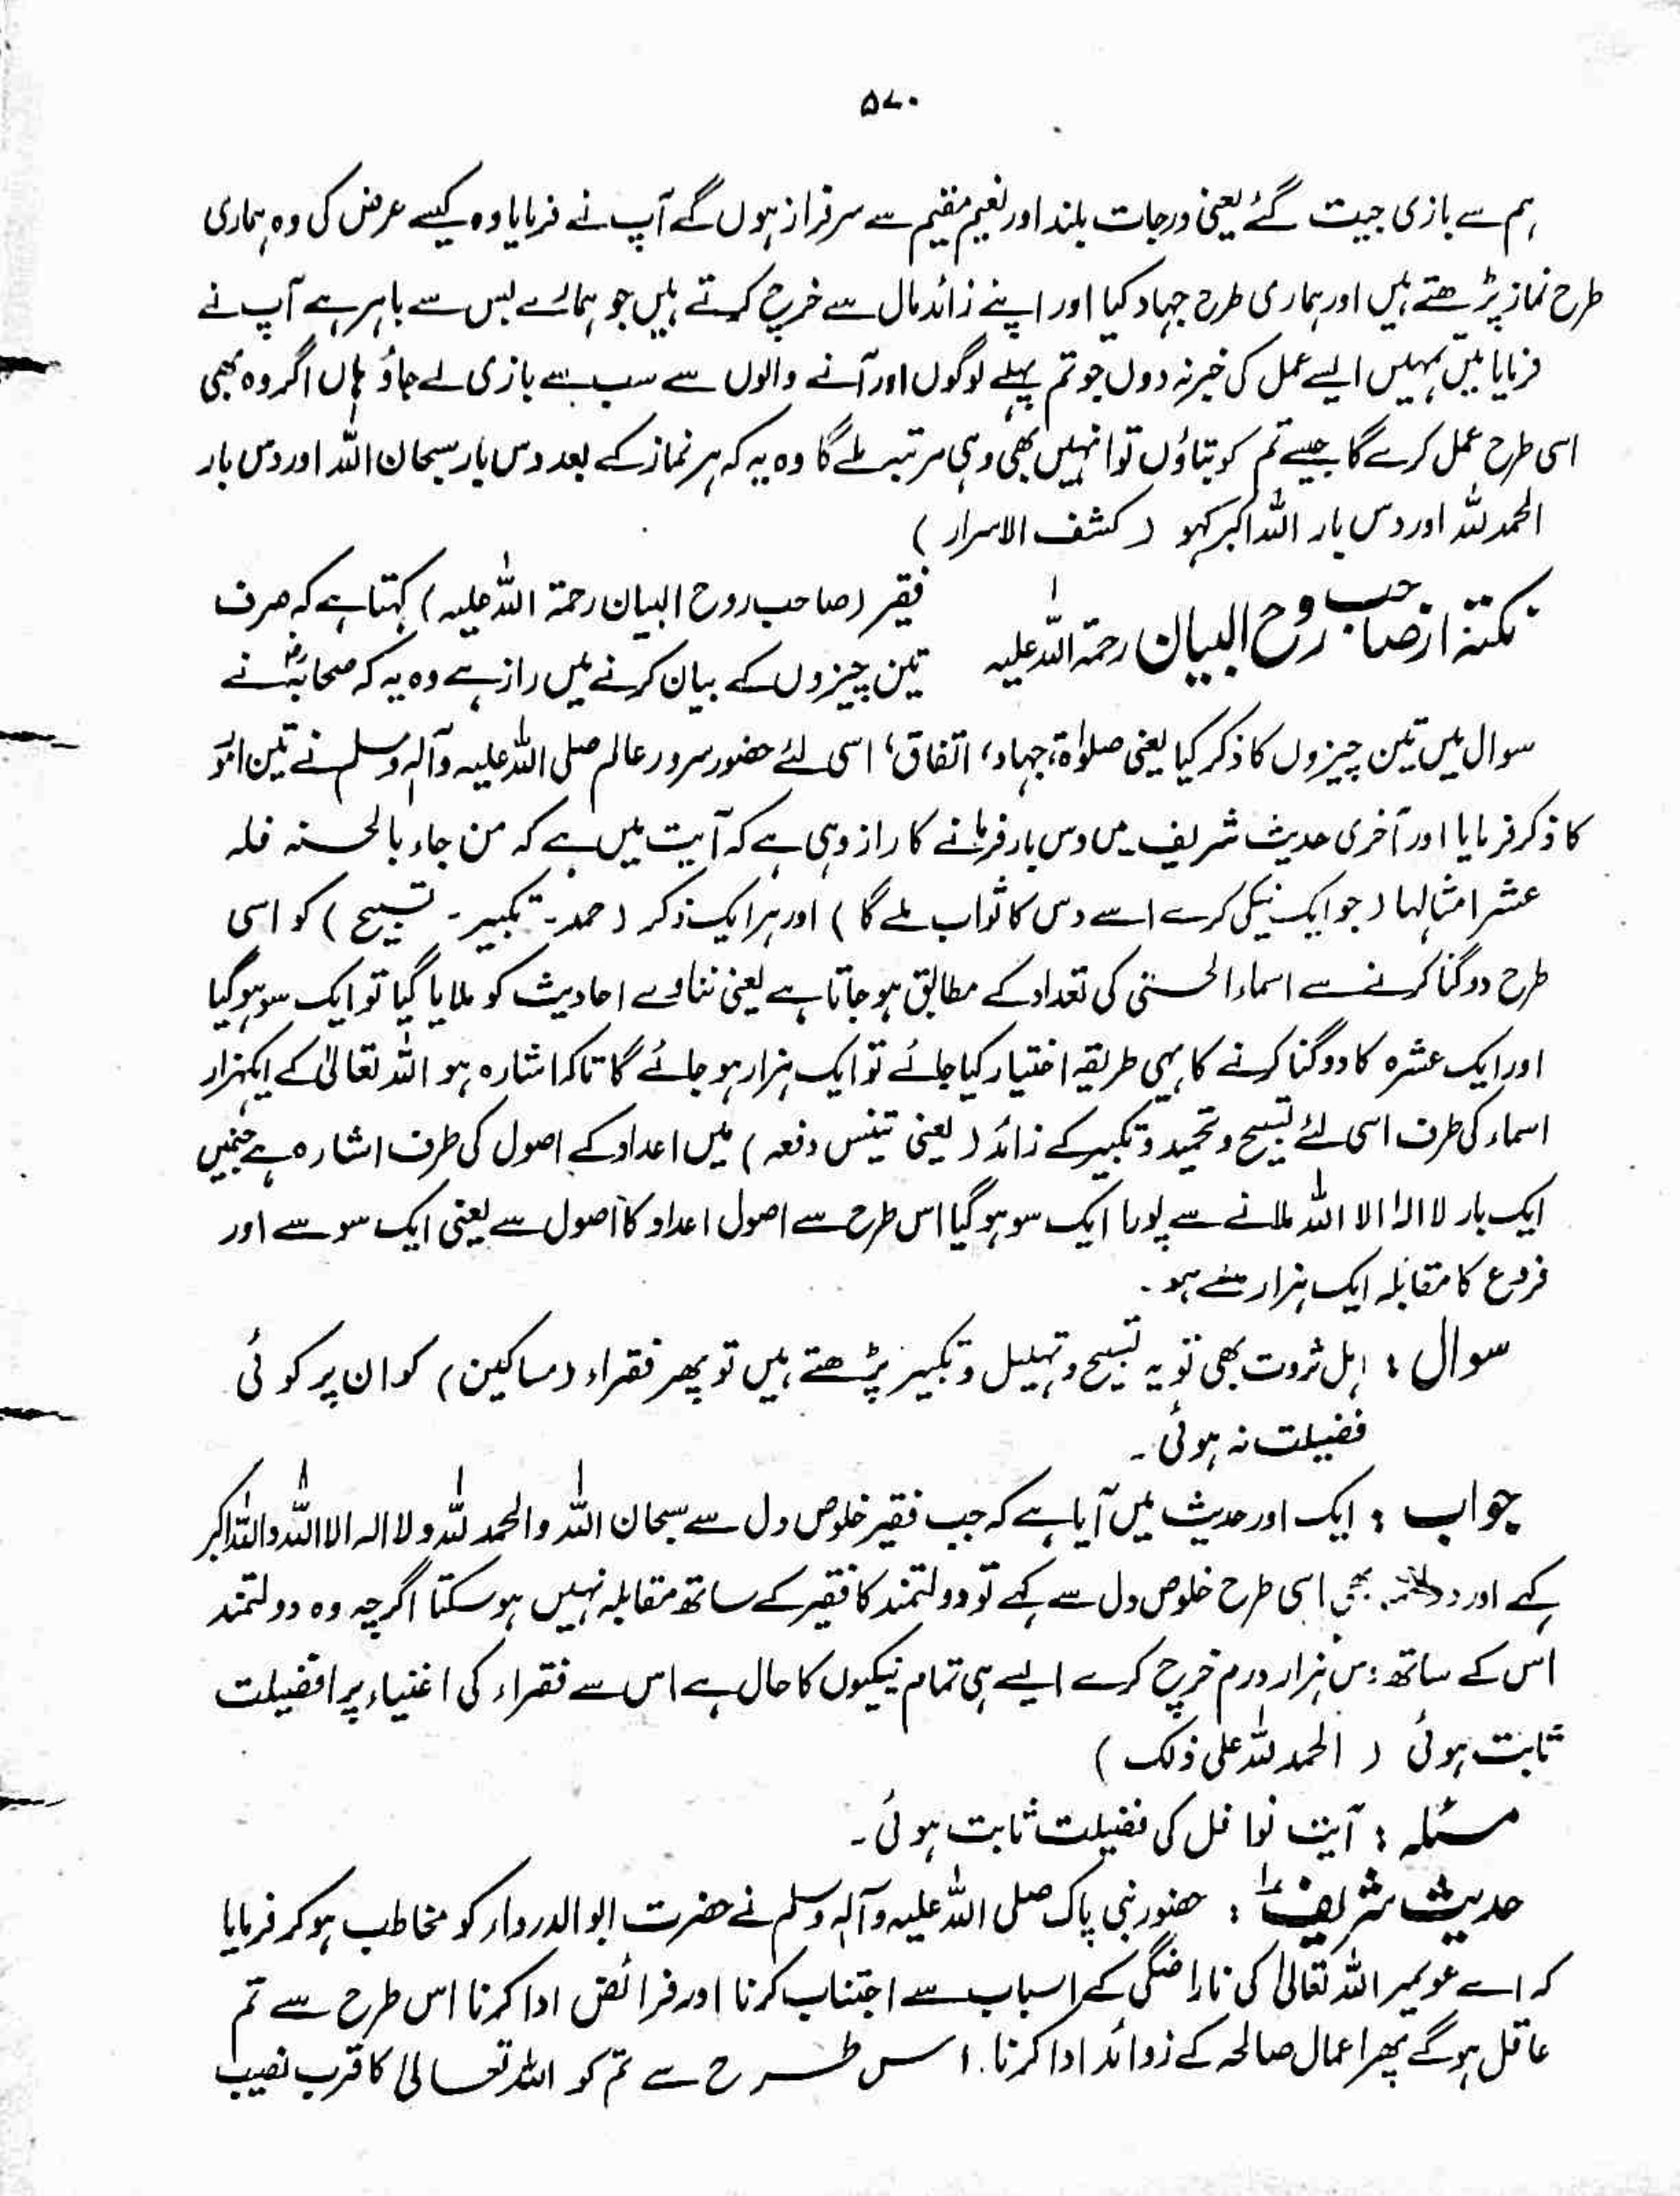 ۵۷۰
ہم سے بازی جیت گئے یعنی درجات بلند اور نعیم مقیم سے سرفراز ہوں گے آپ نے فرمایا وہ کیسے عرض کی وہ ہماری
طرح نماز پڑھتے ہیں اور ہماری طرح جہاد کیا اور اپنے زائد مال سے خرچ کرتے ہیں جو ہمارے بس سے باہر ہے آپ نے
فرمایا میں تمہیں ایسے عمل کی خبر نہ دوں جو تم پہلے لوگوں اور آنے والوں سے سب سے بازی لے جاؤ ہاں اگر وہ بھی
اسی طرح عمل کرے گا جیسے تم کو بتاؤں تو انہیں بھی وہی مرتبہ ملے گا وہ یہ کہ ہر نماز کے بعد دس بار سبحان اللہ اور دس بار
الحمد للہ اور دس بار اللہ اکبر کہو (کشف الاسرار)
نکتہ از صاحب روح البیان رحمۃ اللہ علیہ
فقیر (صاحب روح البیان رحمۃ اللہ علیہ) کہتا ہے کہ صرف
تین چیزوں کے بیان کرنے میں راز ہے وہ یہ کہ صحابہؓ نے
سوال میں تین چیزوں کا ذکر کیا یعنی صلوٰۃ، جہاد، اتفاق، اسی لئے حضور سرور عالم صلی اللہ علیہ وآلہ وسلم نے تین امور
کا ذکر فرمایا اور آخری حدیث شریف میں دس بار فرمانے کا راز وہی ہے کہ آیت میں ہے کہ من جاء بالحسنہ فلہ
عشر امثالہا (جو ایک نیکی کرے اسے دس کا ثواب ملے گا) اور ہر ایک ذکر (حمد۔ تکبیر۔ تسبیح) کو اسی
طرح دوگنا کرنے سے اسماء الحسنٰی کی تعداد کے مطابق ہو جاتا ہے یعنی ننانوے احادیث کو ملایا گیا تو ایک سو ہو گیا
اور ایک عشرہ کا دوگنا کرنے کا یہی طریقہ اختیار کیا جائے تو ایک ہزار ہو جائے گا تاکہ اشارہ ہو اللہ تعالیٰ کے ایکہزار
اسماء کی طرف اسی لئے تسبیح و تحمید و تکبیر کے زائد (یعنی تینتس دفعہ) میں اعداد کے اصول کی طرف اشارہ ہے جنہیں
ایک بار لا الہ الا اللہ ملانے سے پورا ایک سو ہو گیا اس طرح سے اصول اعداد کا اصول سے یعنی ایک سو سے اور
فروع کا مقابلہ ایک ہزار سے ہو۔
سوال : اہل ثروت بھی تو یہ تسبیح و تہلیل و تکبیر پڑھتے ہیں تو پھر فقراء (مساکین) کو ان پر کوئی
فضیلت نہ ہوئی۔
جواب : ایک اور حدیث میں آیا ہے کہ جب فقیر خلوص دل سے سبحان اللہ والحمد للہ ولا الہ الا اللہ واللہ اکبر
کہے اور بھی اسی طرح خلوص دل سے کہے تو دولتمند کا فقیر کے ساتھ مقابلہ نہیں ہو سکتا اگرچہ وہ دولتمند
اس کے ساتھ دس ہزار درم خرچ کرے ایسے ہی تمام نیکیوں کا حال ہے اس سے فقراء کی اغنیاء پر افضیلت
ثابت ہوئی (الحمد للہ علی ذلک)
مسئلہ : آیت نوافل کی فضیلت ثابت ہوئی۔
حدیث شریف ۱ : حضور نبی پاک صلی اللہ علیہ وآلہ وسلم نے حضرت ابو الدرداء کو مخاطب ہو کر فرمایا
کہ اے عویمیر اللہ تعالیٰ کی ناراضگی کے اسباب سے اجتناب کرنا اور فرائض ادا کرنا اس طرح سے تم
عاقل ہو گے پھر اعمال صالحہ کے زوائد ادا کرنا۔ اس طرح سے تم کو اللہ تعالیٰ کا قرب نصیب